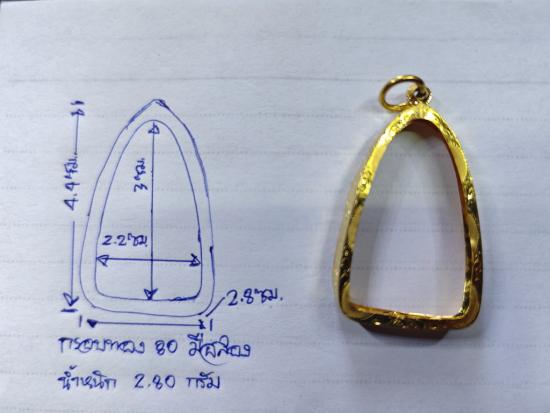 4.4 ซม.
3 ซม.
2.2 ซม.
2.8 ซม.
กรอบทอง 80 มือสอง
น้ำหนัก 2.80 กรัม